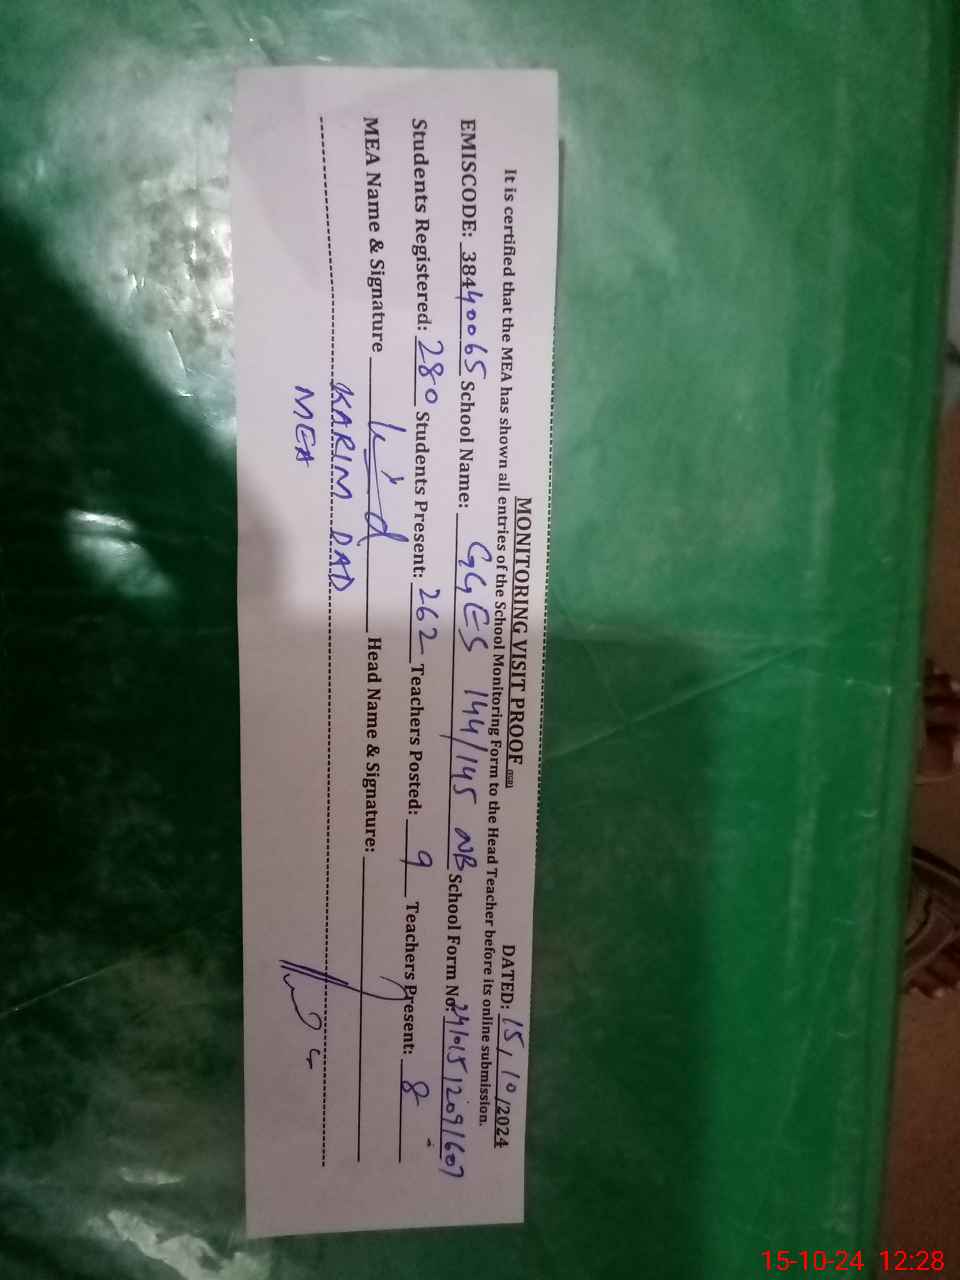 MONITORING VISIT PROOF DATED: 15/10/2024
It is certified that the MEA has shown all entries of the School Monitoring Form to the Head Teacher before its online submission.
EMISCODE: 38440065 School Name: GGES 144/145 NB School Form No: 24101512091607
Students Registered: 280 Students Present: 262 Teachers Posted: 9 Teachers Present: 8
MEA Name & Signature Head Name & Signature:
KARIM DAD
MEA
15-10-24 12:28